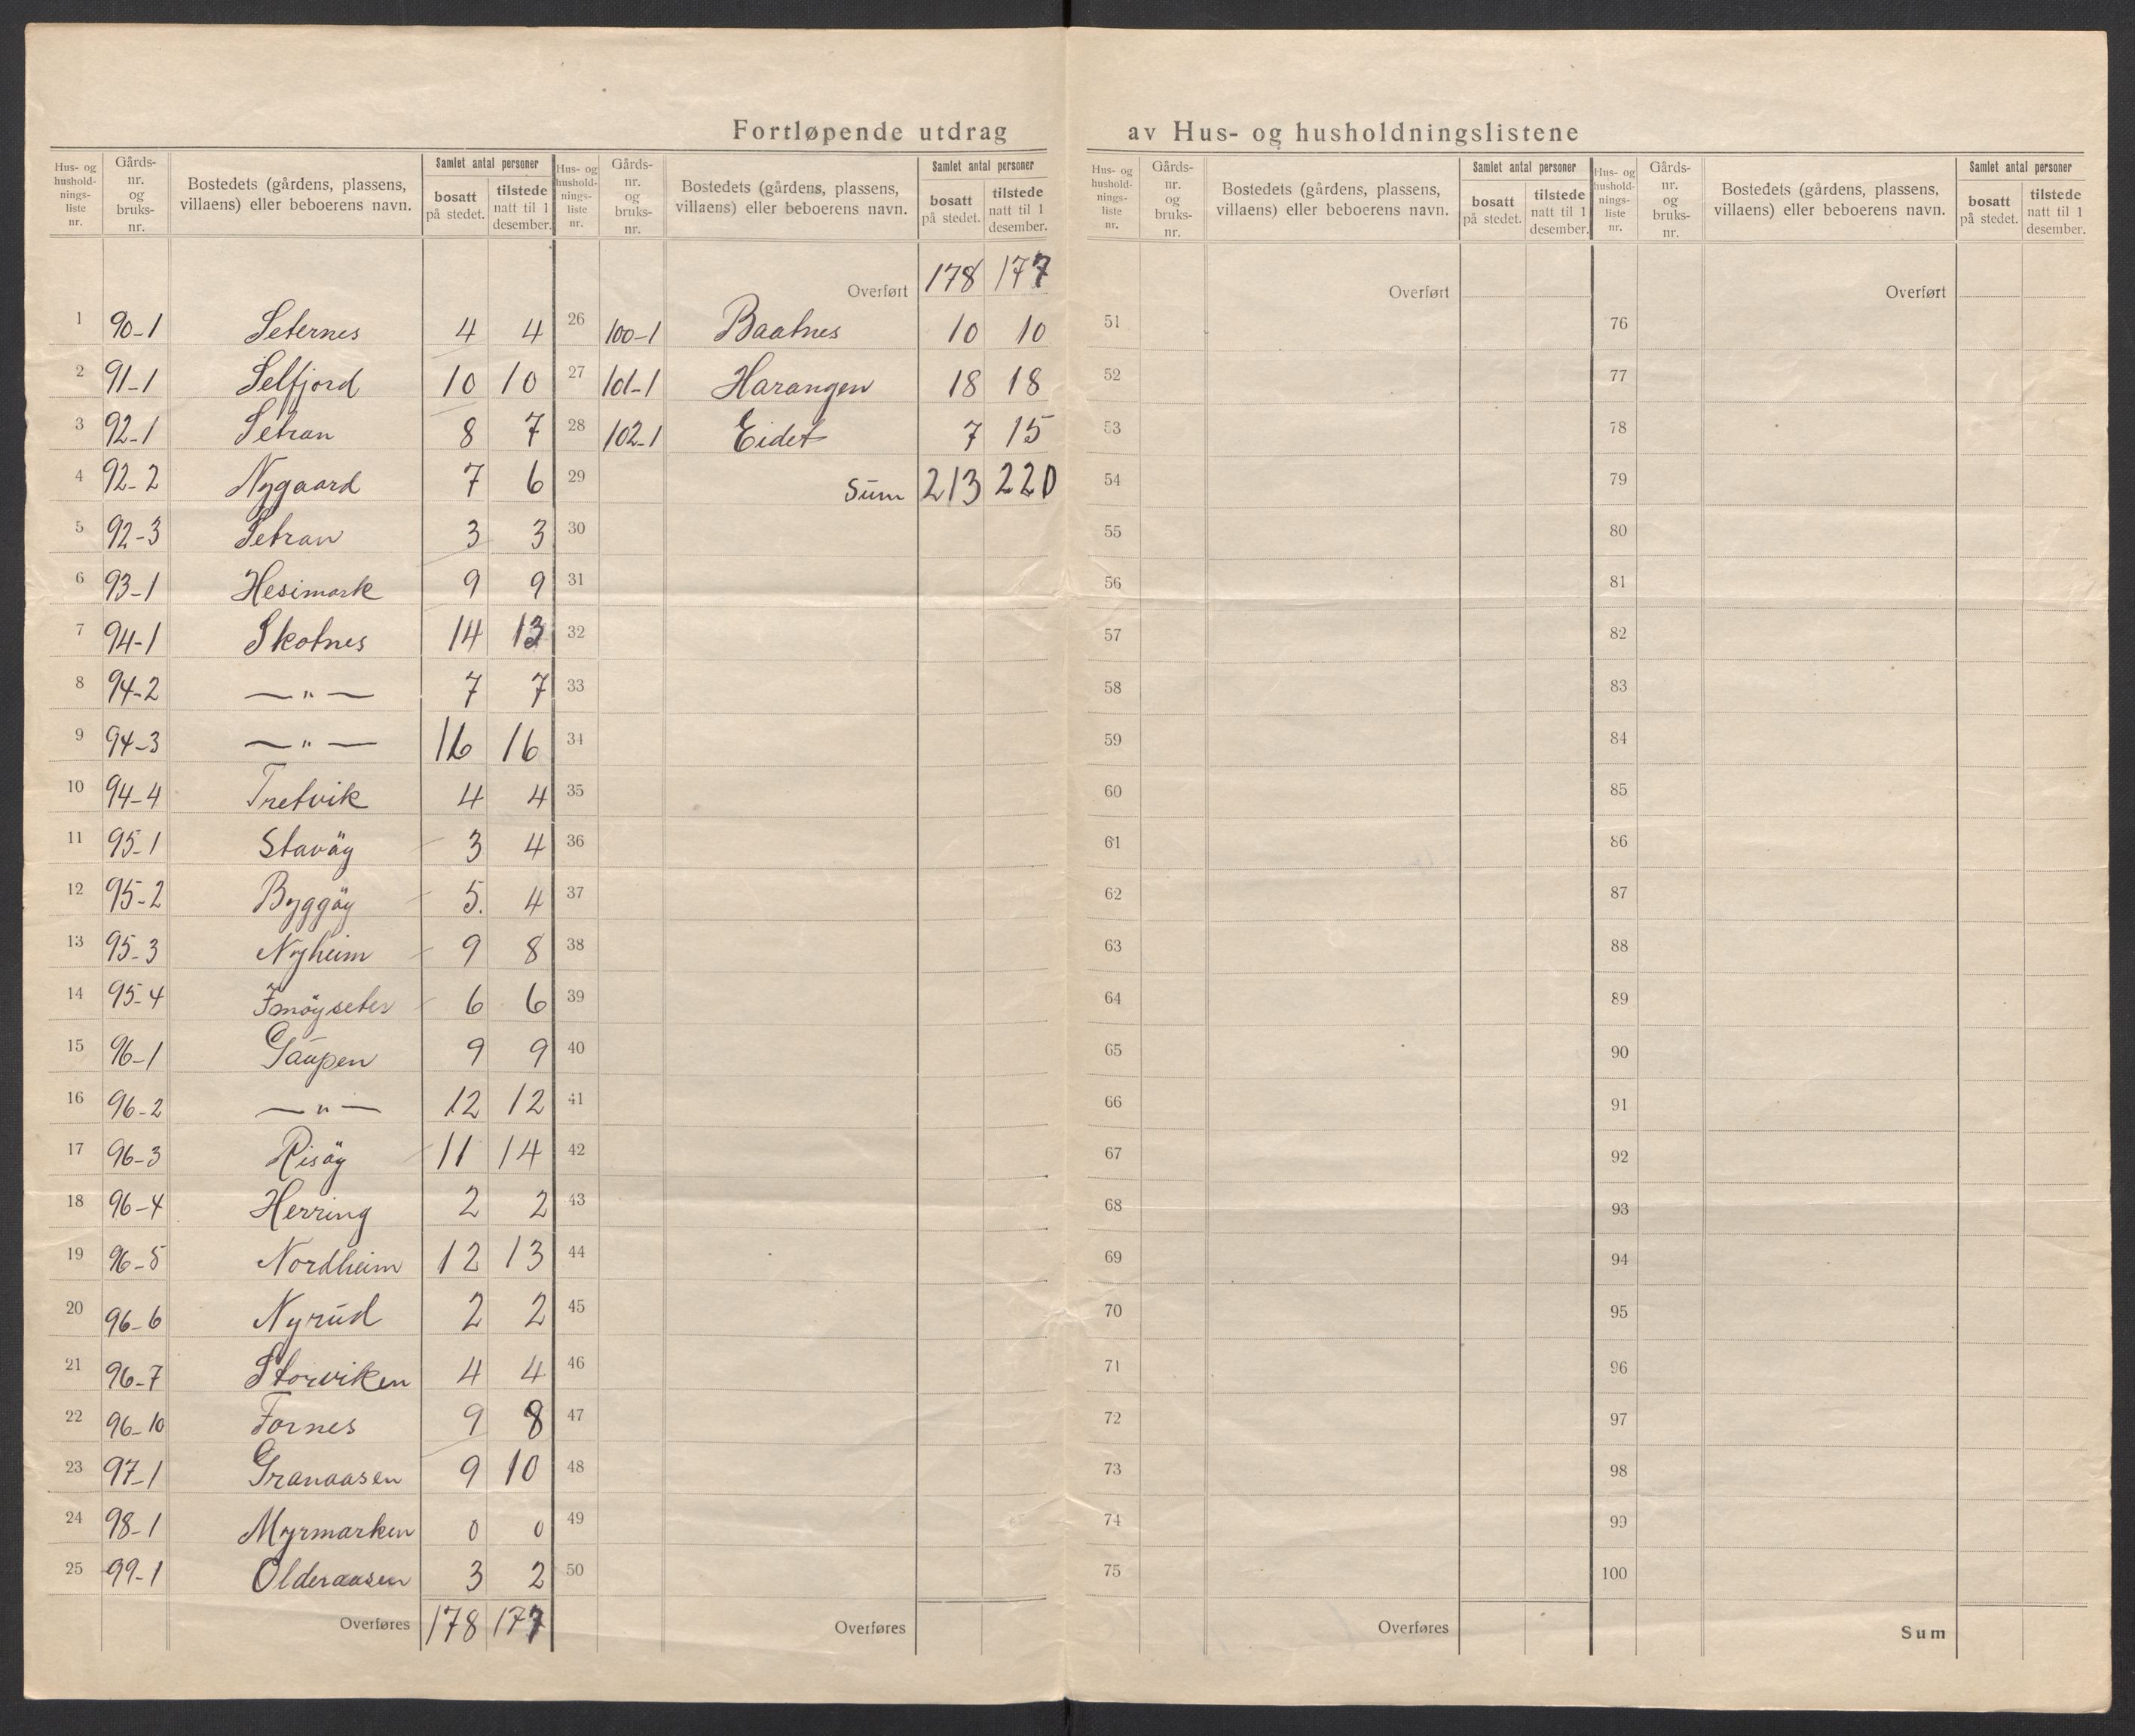 Fortløpende utdrag av Hus- og husholdningslistene
Hus- og hushold-nings-liste nr. Gårds-nr. og bruks-nr. Bostedets (gårdens, plassens, villaens) eller beboerens navn. Samlet antal personer bosatt på stedet. tilstede natt til 1 desember.
1 90-1 Seternes 4 4
2 91-1 Selfjord 10 10
3 92-1 Setran 8 7
4 92-2 Nygaard 7 6
5 92-3 Setran 3 3
6 93-1 Hesimark 9 9
7 94-1 Skotnes 14 13
8 94-2 —"— 7 7
9 94-3 —"— 16 16
10 94-4 Tretvik 4 4
11 95-1 Stavöy 3 4
12 95-2 Byggöy 5. 4
13 95-3 Nyheim 9 8
14 95-4 6 6
15 96-1 Gaupen 9 9
16 96-2 —"— 12 12
17 96-3 Risöy 11 14
18 96-4 Herring 2 2
19 96-5 Nordheim 12 13
20 96-6 Nyrud 2 2
21 96-7 Storviken 4 4
22 96-10 Fornes 9 8
23 97-1 Granaasen 9 10
24 98-1 Myrmarken 0 0
25 99-1 Olderaasen 3 2
Overføres 178 177
Hus- og hushold-nings-liste nr. Gårds-nr. og bruks-nr. Bostedets (gårdens, plassens, villaens) eller beboerens navn. Samlet antal personer bosatt på stedet. tilstede natt til 1 desember.
Overført 178 177
26 100-1 Baatnes 10 10
27 101-1 Harangen 18 18
28 102-1 Eidet 7 15
29 Sum 213 220
30
31
32
33
34
35
36
37
38
39
40
41
42
43
44
45
46
47
48
49
50
Overføres
Hus- og hushold-nings-liste nr. Gårds-nr. og bruks-nr. Bostedets (gårdens, plassens, villaens) eller beboerens navn. Samlet antal personer bosatt på stedet. tilstede natt til 1 desember.
Overført
51
52
53
54
55
56
57
58
59
60
61
62
63
64
65
66
67
68
69
70
71
72
73
74
75
Overføres
Hus- og hushold-nings-liste nr. Gårds-nr. og bruks-nr. Bostedets (gårdens, plassens, villaens) eller beboerens navn. Samlet antal personer bosatt på stedet. tilstede natt til 1 desember.
Overført
76
77
78
79
80
81
82
83
84
85
86
87
88
89
90
91
92
93
94
95
96
97
98
99
100
Sum